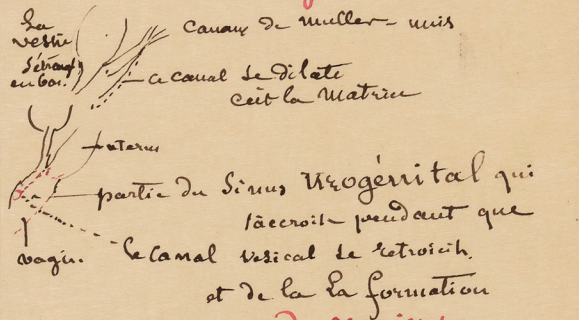 La
vessie
s'étrangl
en bas.
canaux de muller - unis
ce canal se dilate
c'est la Matrice
uterus
partie du Sinus Urogénital qui
s'accroit pendant que
vagin.
le canal vesical se retrécit.
et de la la formation